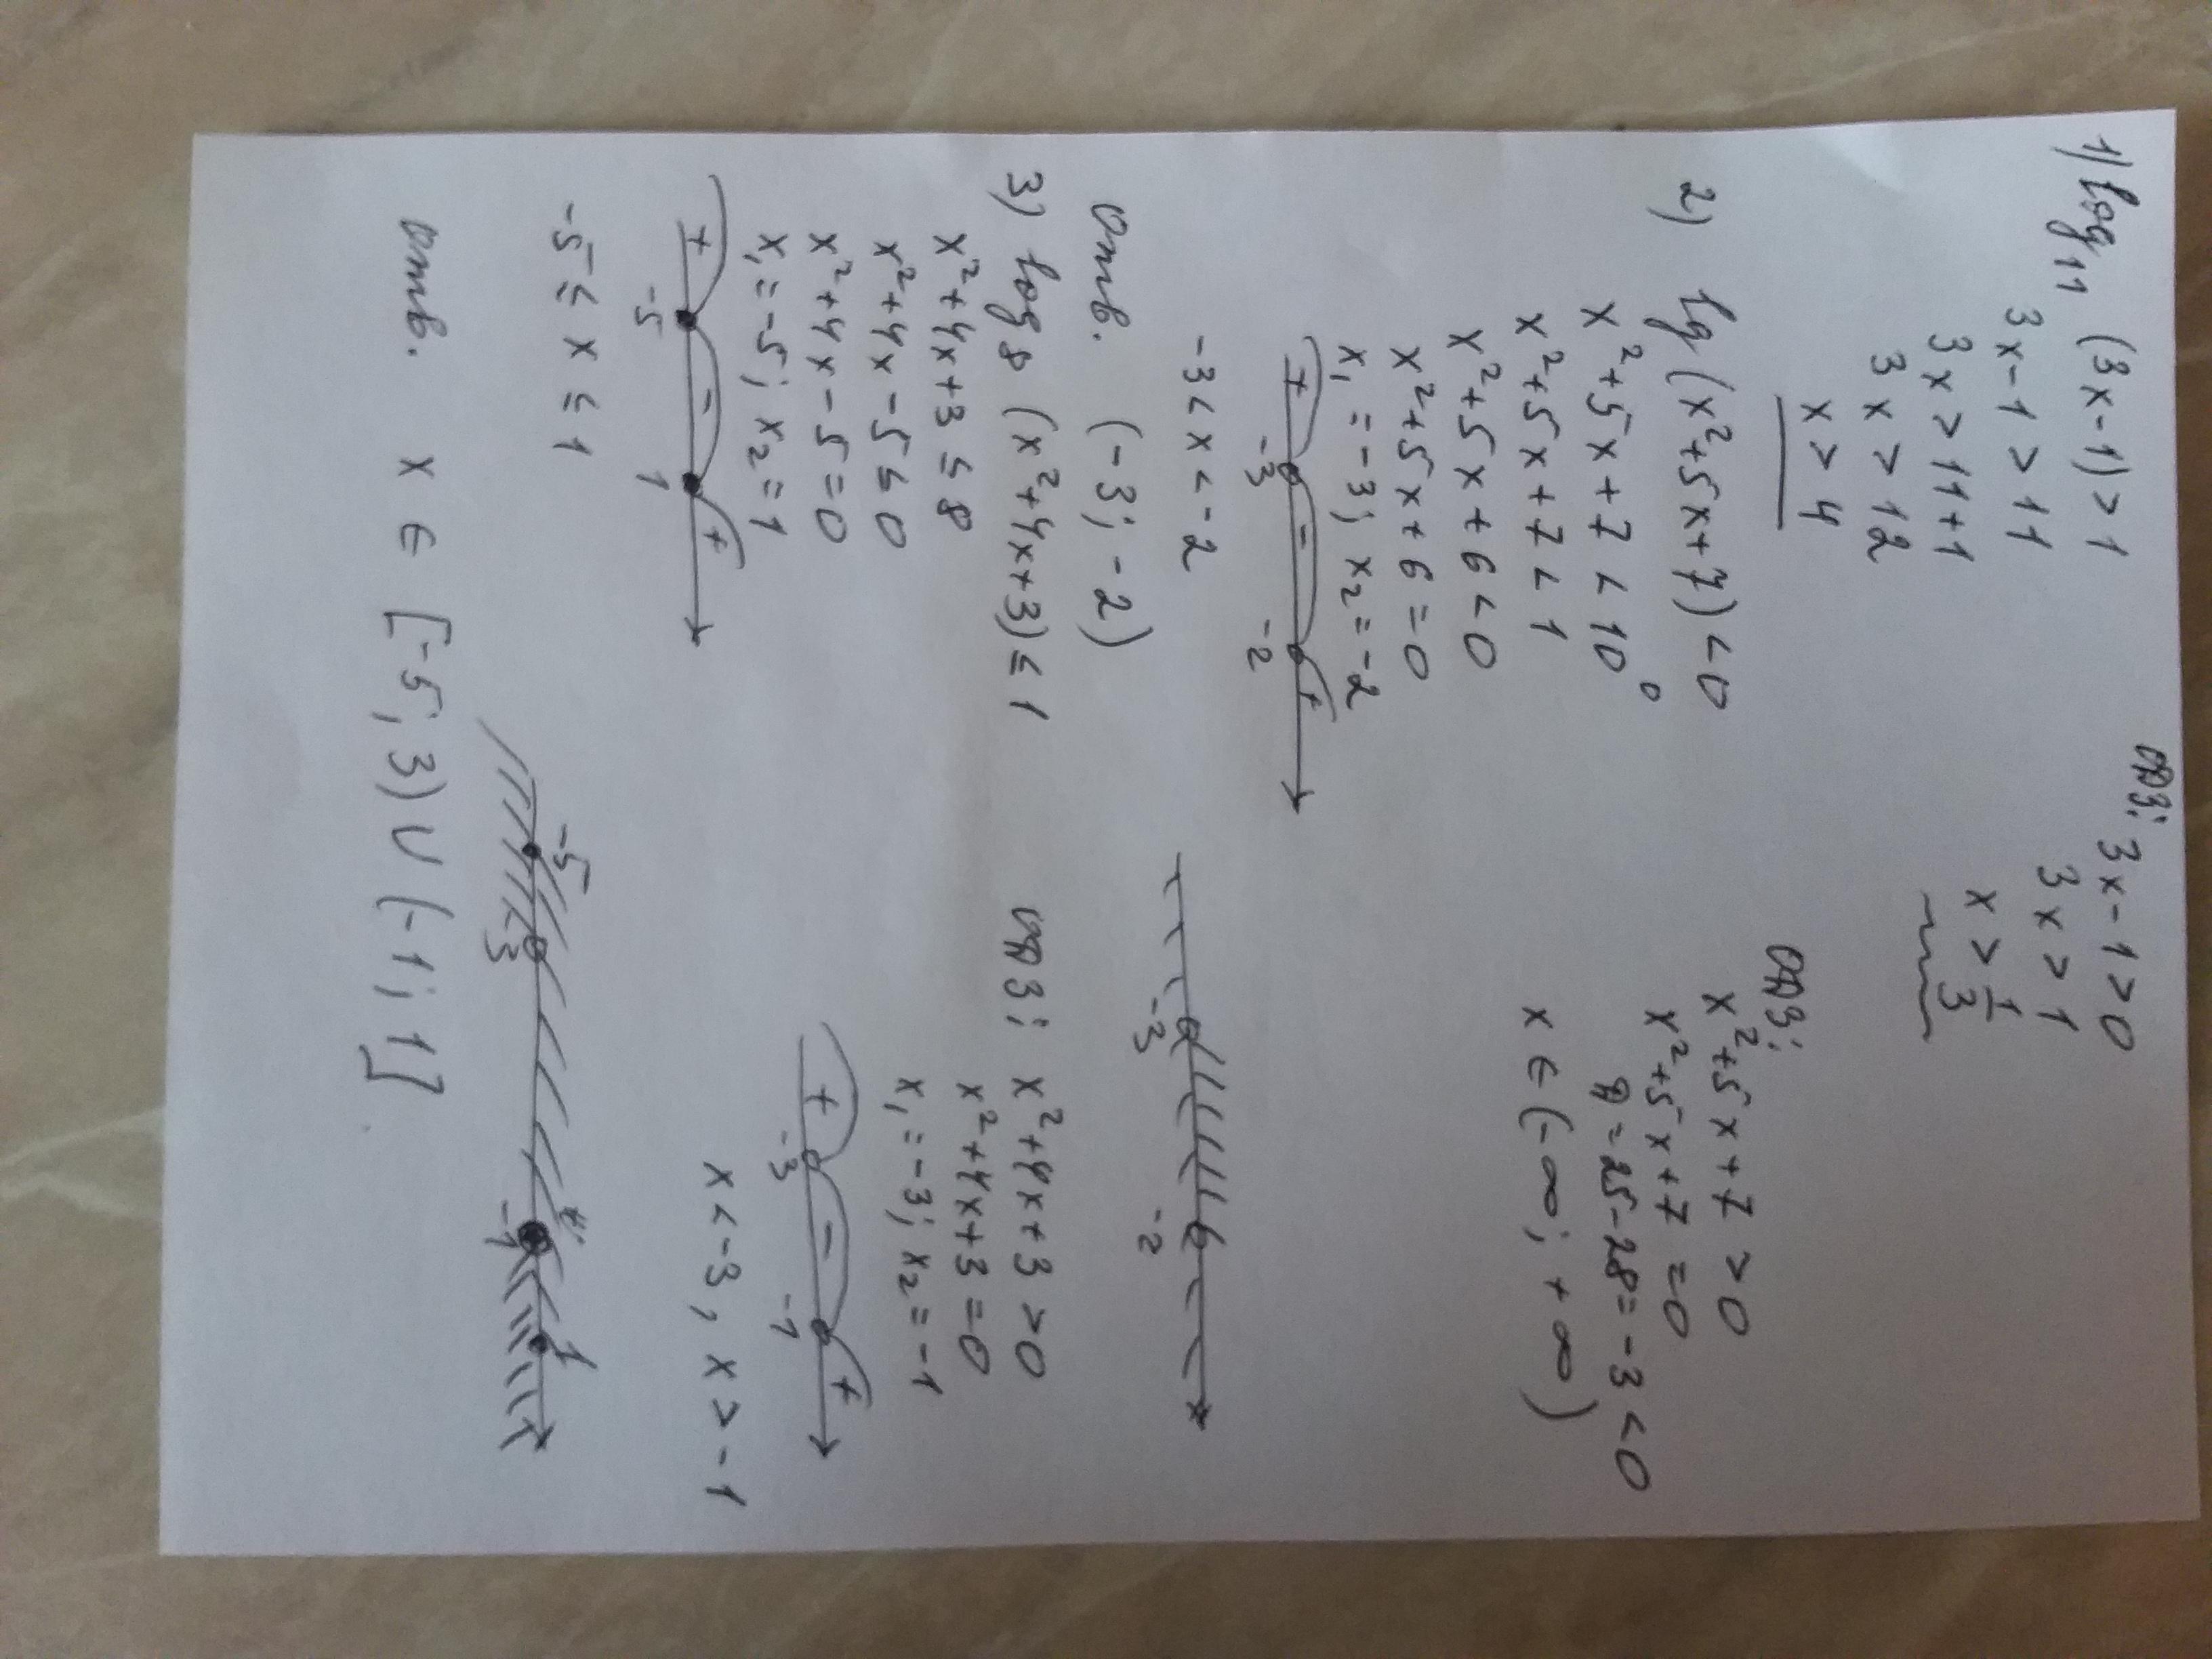 1) log₁₁ (3x-1) > 1
3x-1 > 11
3x > 11+1
3x > 12
x > 4
ОДЗ: 3x-1 > 0
3x > 1
x > 1/3
2) lg (x²+5x+7) < 0
x²+5x+7 < 10⁰
x²+5x+7 < 1
x²+5x+6 < 0
x²+5x+6 = 0
x₁ = -3; x₂ = -2
+ - +
-3 -2
-3 < x < -2
ОДЗ:
x²+5x+7 > 0
x²+5x+7 = 0
Д = 25-28 = -3 < 0
x ∈ (-∞; +∞)
-3 -2
Отв. (-3; -2)
3) log₈ (x²+4x+3) ≤ 1
x²+4x+3 ≤ 8
x²+4x-5 ≤ 0
x²+4x-5 = 0
x₁ = -5; x₂ = 1
+ - +
-5 1
-5 ≤ x ≤ 1
ОДЗ: x²+4x+3 > 0
x²+4x+3 = 0
x₁ = -3; x₂ = -1
+ - +
-3 -1
x < -3, x > -1
-5 1
-3 -1
Отв. x ∈ [-5; 3) ∪ (-1; 1]